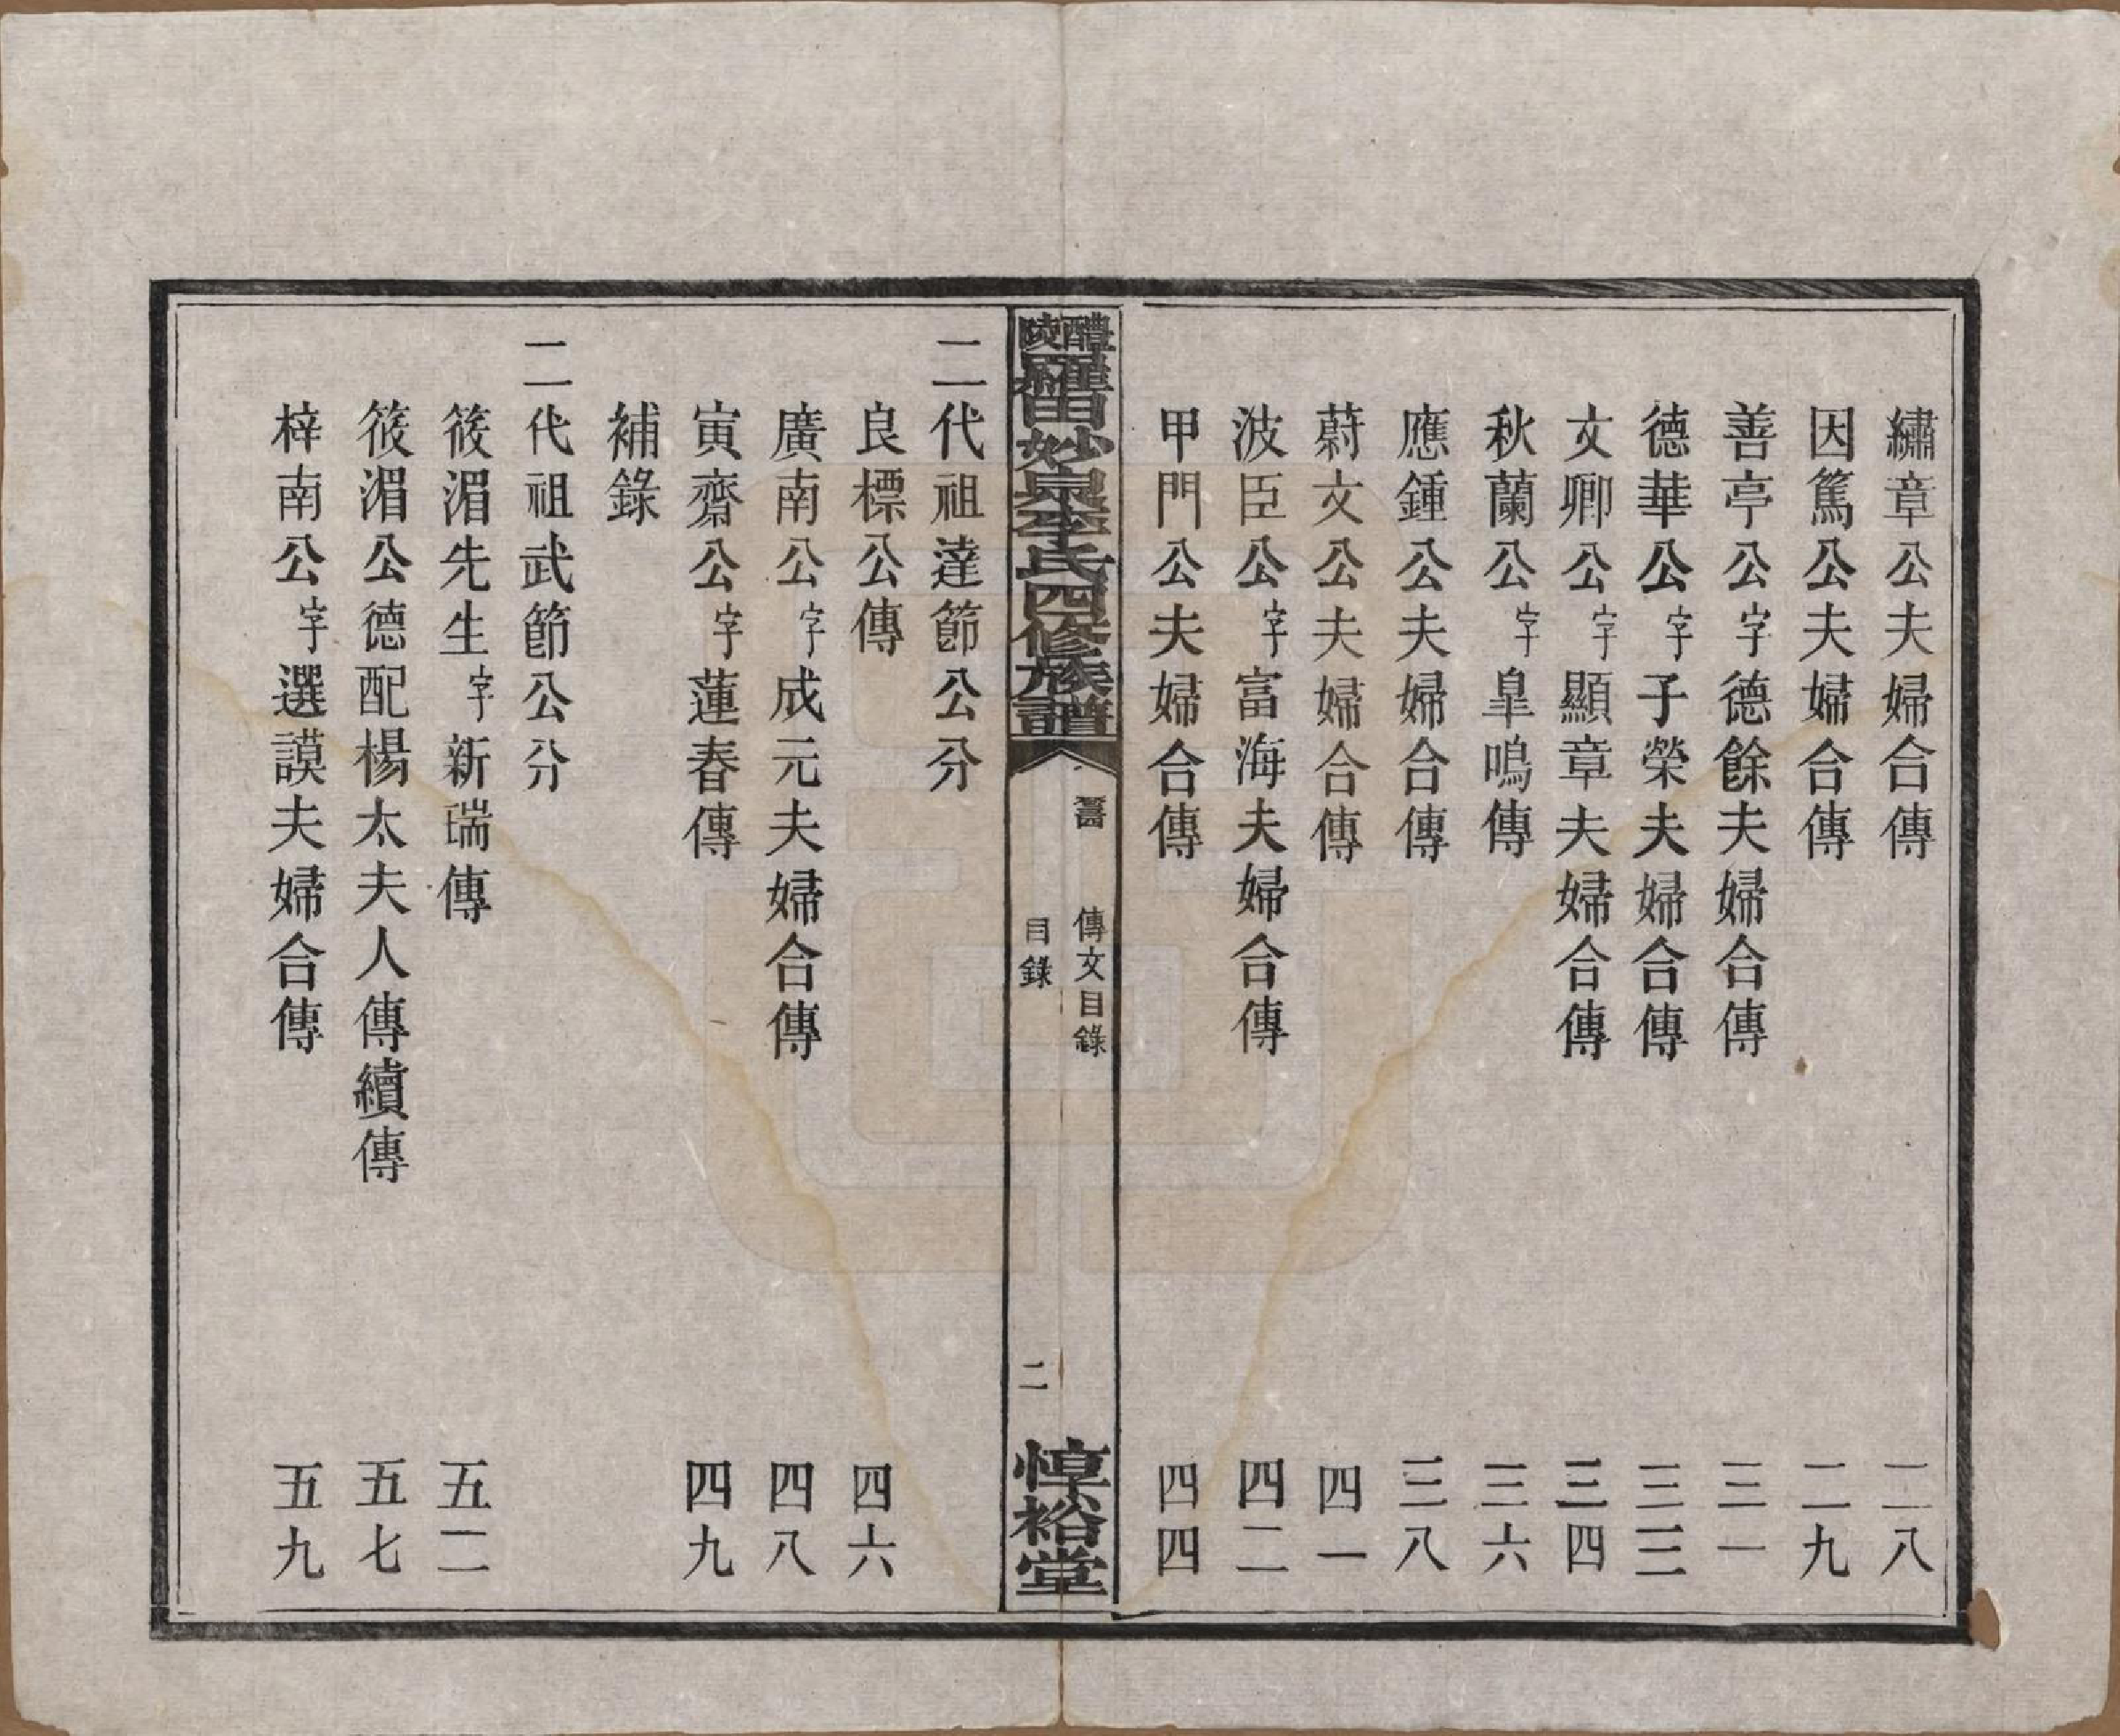 繡章公夫婦合傳 二八
因篤公夫婦合傳 二九
善亭公字德餘夫婦合傳 三一
德華公字子榮夫婦合傳 三三
文卿公字顯章夫婦合傳 三四
秋蘭公字臯鳴傳 三六
應鍾公夫婦合傳 三八
蔚文公夫婦合傳 四一
波臣公字富海夫婦合傳 四二
甲門公夫婦合傳 四四
醴陵羅田妙泉李氏四修族譜
傳文目錄
目錄
二
惇裕堂
二代祖達節公分
良標公傳 四六
廣南公字成元夫婦合傳 四八
寅齋公字蓮春傳 四九
補錄
二代祖武節公分
筱湄先生字新瑞傳 五二
筱湄公德配楊太夫人傳續傳 五七
梓南公字選謨夫婦合傳 五九